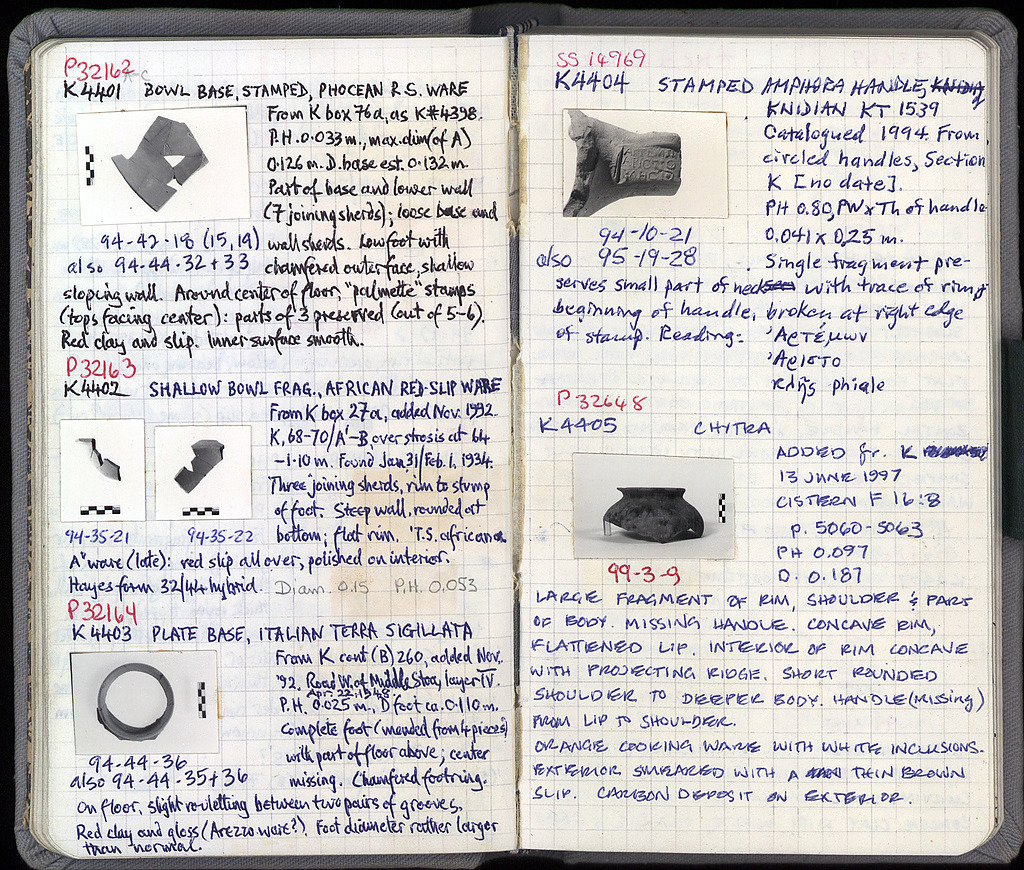 P32162 A-C
K4401 BOWL BASE, STAMPED, PHOCEAN R.S. WARE
From K box 76a, as K#4398.
P.H. 0.033 m., max.dim (of A)
0.126 m. D. base est. 0.132 m.
Part of base and lower wall
(7 joining sherds); loose base and
94-42-18 (15,19) wall sherds. Low foot with
also 94-44-32+33 chamfered outer face, shallow
sloping wall. Around center of floor, "palmette" stamps
(tops facing center): parts of 3 preserved (out of 5-6).
Red clay and slip. Inner surface smooth.
P32163
K4402 SHALLOW BOWL FRAG., AFRICAN RED-SLIP WARE
From K box 27a, added Nov. 1992.
K, 68-70/A'-B, over stosis at 64
-1.10 m. Found Jan 31/Feb. 1, 1934.
Three joining sherds, rim to stump
of foot. Steep wall, rounded at
94-35-21 94-35-22 bottom; flat rim. "T.S. african
A" ware (late): red slip all over, polished on interior.
Hayes form 32/44 hybrid. Diam. 0.15 P.H. 0.053
P32164
K4403 PLATE BASE, ITALIAN TERRA SIGILLATA
From K cont (B) 260, added Nov.
'92. Road W. of Middle Stoa, layer IV.
Apr. 22. 1948
P.H. 0.025 m., D foot ca. 0.110 m.
Complete foot (mended from 4 pieces)
94-44-36 with part of floor above; center
also 94-44-35+36 missing. Chamfered foot ring.
On floor, slight rouletting between two pairs of grooves,
Red clay and gloss (Arezzo ware?). Foot diameter rather larger
than normal.
SS 14969
K4404 STAMPED AMPHORA HANDLE,
KNIDIAN KT 1539
Catalogued 1994. From
circled handles, Section
K [no date].
PH 0.80, PW x Th of handle
94-10-21 0.041 x 0.25 m.
also 95-19-28 Single fragment pre-
serves small part of neck with trace of rim,
beginning of handle, broken at right edge
of stamp. Reading: Ἀρτέμων
Ἀριστο
κλῆς phiale
P 32648
K4405 CHYTRA
ADDED fr. K
13 JUNE 1997
CISTERN F 16:8
p. 5060-5063
PH 0.097
99-3-9 D. 0.187
LARGE FRAGMENT OF RIM, SHOULDER & PART
OF BODY. MISSING HANDLE. CONCAVE RIM,
FLATTENED LIP. INTERIOR OF RIM CONCAVE
WITH PROJECTING RIDGE. SHORT ROUNDED
SHOULDER TO DEEPER BODY. HANDLE (MISSING)
FROM LIP TO SHOULDER.
ORANGE COOKING WARE WITH WHITE INCLUSIONS.
EXTERIOR SMEARED WITH A THIN BROWN
SLIP. CARBON DEPOSIT ON EXTERIOR.